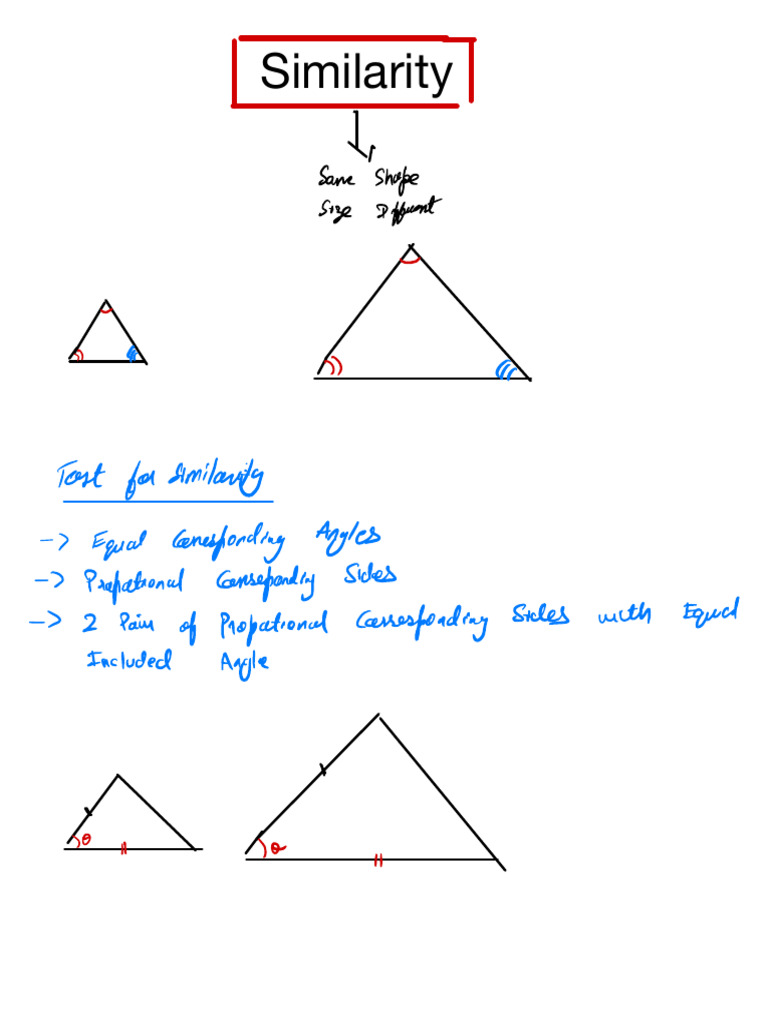 Similarity
Same Shape
Size Different
Test for Similarity
-> Equal Corresponding Angles
-> Propational Corresponding Sides
-> 2 Pair of Propotional Corresponding Sides with Equal
Included Angle
θ
θ